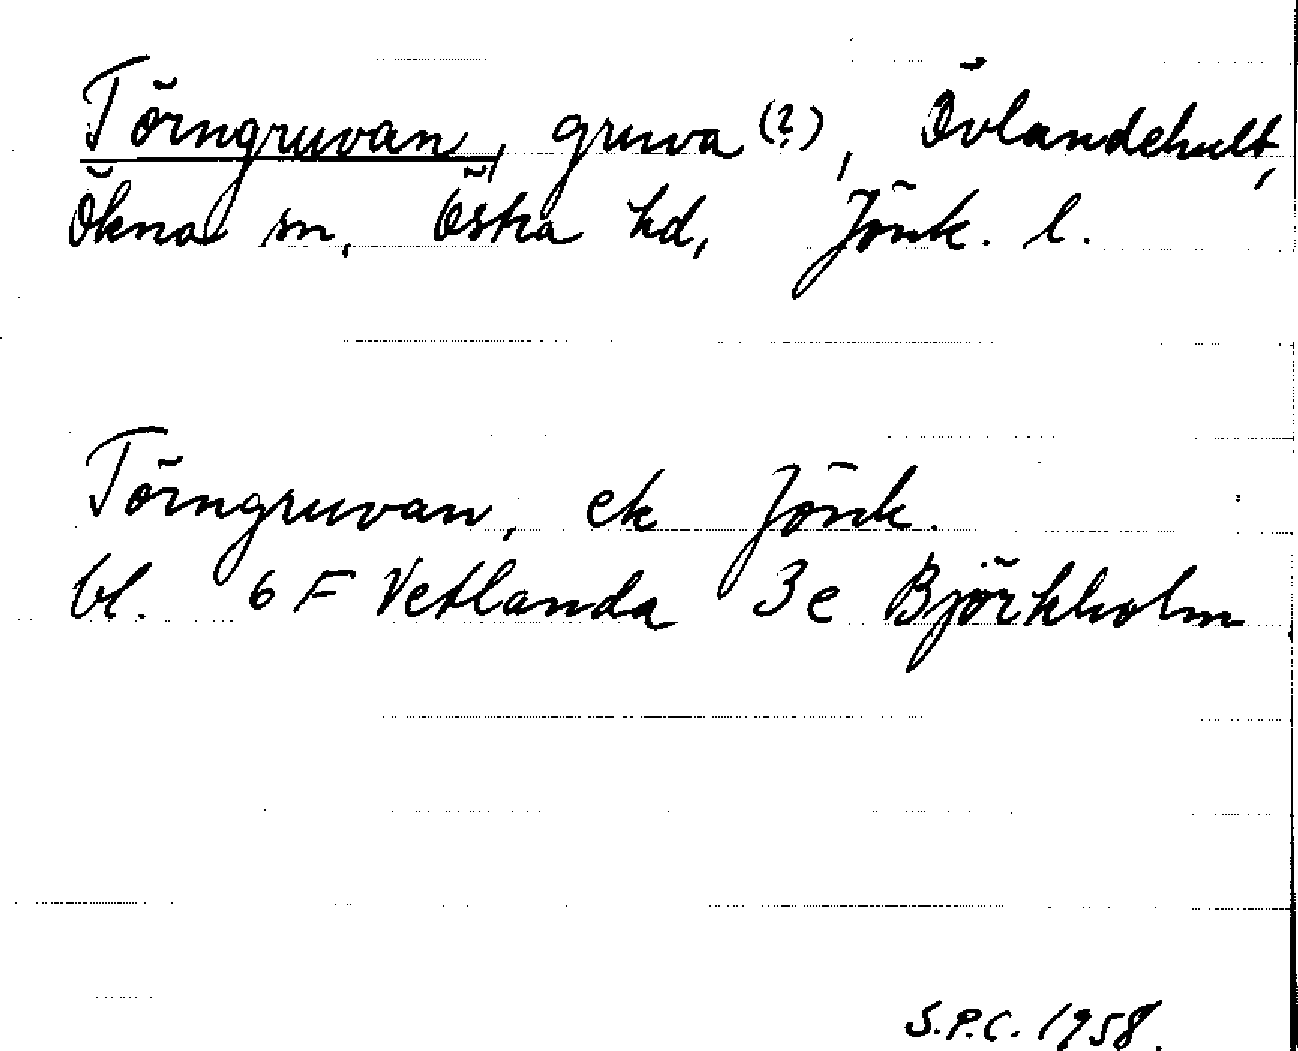 Törngruvan, gruva (?), Övlandehult,
Ökna sn, Östra hd, Jönk. l.
Törngruvan, ek Jönk.
bl. 6 F Vetlanda 3e Björkholm
S.P.C. 1958.